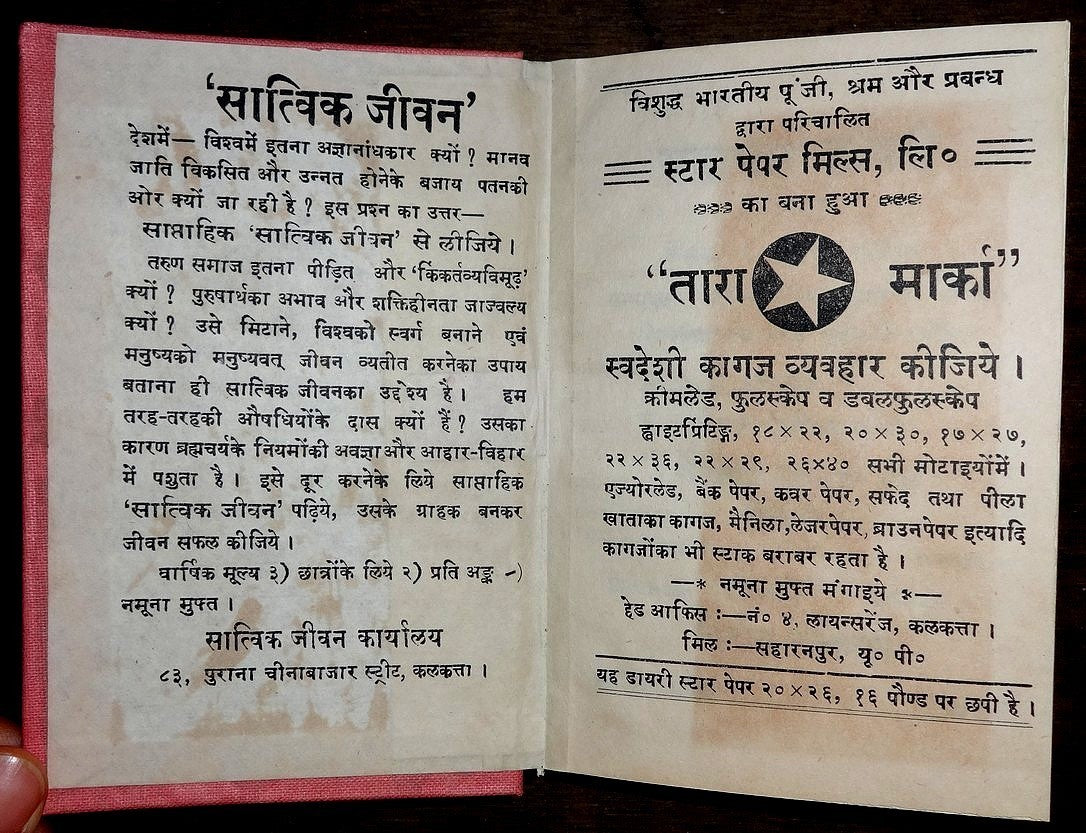 ‘सात्विक जीवन’
देशमें— विश्वमें इतना अज्ञानांधकार क्यों ? मानव
जाति विकसित और उन्नत होनेके बजाय पतनकी
ओर क्यों जा रही है ? इस प्रश्न का उत्तर—
साप्ताहिक ‘सात्विक जीवन’ से लीजिये ।
तरुण समाज इतना पीड़ित और ‘किंकर्तव्यविमूढ़’
क्यों ? पुरुषार्थका अभाव और शक्तिहीनता जाज्वल्य
क्यों ? उसे मिटाने, विश्वको स्वर्ग बनाने एवं
मनुष्यको मनुष्यवत् जीवन व्यतीत करनेका उपाय
बताना ही सात्विक जीवनका उद्देश्य है । हम
तरह-तरहकी औषधियोंके दास क्यों हैं ? उसका
कारण ब्रह्मचर्यके नियमोंकी अवज्ञा और आहार-विहार
में पशुता है । इसे दूर करनेके लिये साप्ताहिक
‘सात्विक जीवन’ पढ़िये, उसके ग्राहक बनकर
जीवन सफल कीजिये ।
वार्षिक मूल्य ३) छात्रोंके लिये २) प्रति अङ्क -)
नमूना मुफ्त ।
सात्विक जीवन कार्यालय
८३, पुराना चीनाबाजार स्ट्रीट, कलकत्ता ।
विशुद्ध भारतीय पूंजी, श्रम और प्रबन्ध
द्वारा परिचालित
स्टार पेपर मिल्स, लि०
का बना हुआ
“तारा मार्का”
स्वदेशी कागज व्यवहार कीजिये ।
क्रीमलेड, फुलस्केप व डबलफुलस्केप
ह्वाइटप्रिंटिङ्ग, १८×२२, २०×३०, १७×२७,
२२×३६, २२×२९, २६×४० सभी मोटाइयोंमें ।
एज्योरलेड, बैंक पेपर, कवर पेपर, सफेद तथा पीला
खाताका कागज, मैनिला, लेजरपेपर, ब्राउनपेपर इत्यादि
कागजोंका भी स्टाक बराबर रहता है ।
—* नमूना मुफ्त मंगाइये *—
हेड आफिस :—नं० ४, लायन्सरेंज, कलकत्ता ।
मिल :—सहारनपुर, यू० पी०
यह डायरी स्टार पेपर २०×२६, १६ पौण्ड पर छपी है ।